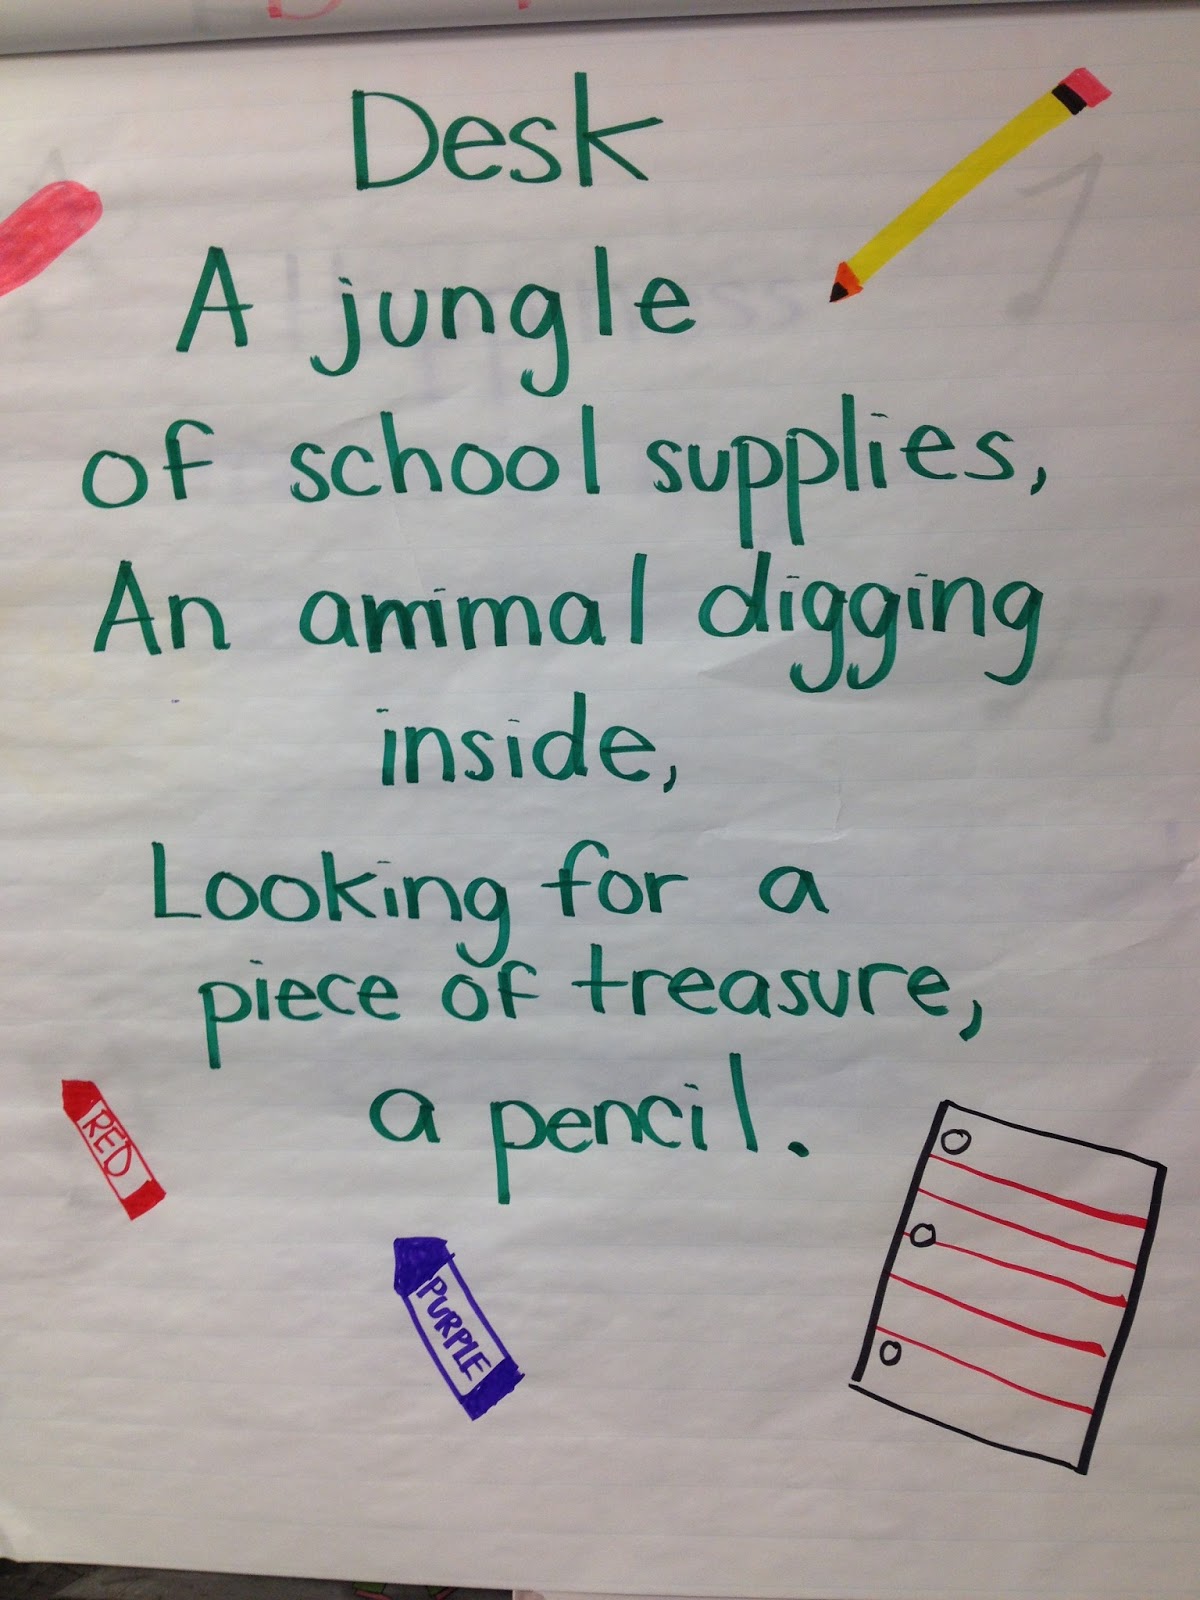 Desk
A jungle
of school supplies,
An animal digging
inside,
Looking for a
piece of treasure,
a pencil.
RED
PURPLE